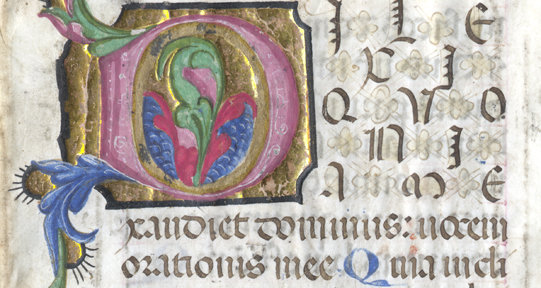 DILE
XI
QVO
NI
AM E
xaudiet dominus: uocem
orationis mee Quia incli